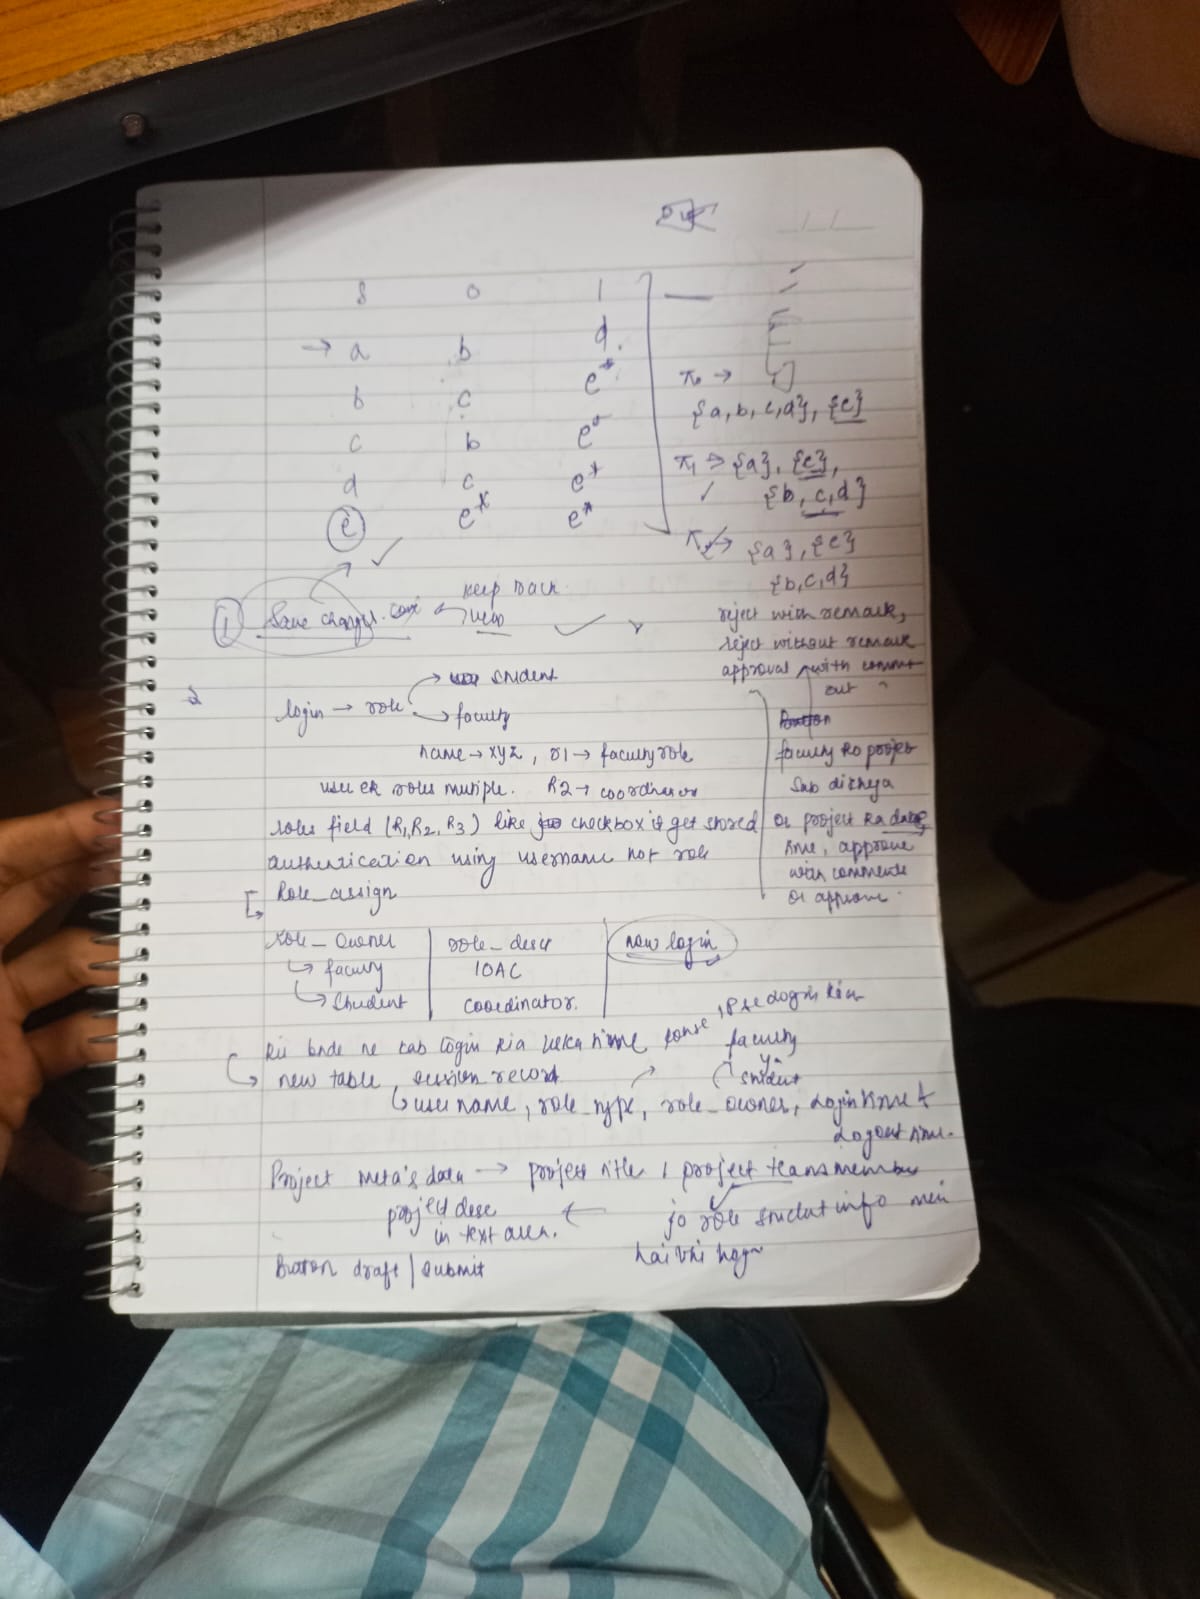 δ 0 1
→ a b d.
b c e*
c b e*
d c e*
e e* e*
π0 →
{a, b, c, d}, {e}
π1 → {a}, {e},
{b, c, d}
π2 → {a}, {e}
{b, c, d}
① Save changes.
keep back
view
reject with remark,
reject without remark
approval with comment
out
2
login → role → student
→ faculty
name → xyz, r1 → faculty role
user ek roles multiple. R2 → coordinator
roles field (R1, R2, R3) like checkbox get stored
authentication using username not role
Role_assign
faculty ko project
sab dikhega
or project ka date
time, approve
with comments
or approve.
role_owner | role_desc | new login
↳ faculty | IOAC
↳ Student | coordinator.
kis bnde ne kab login kia uska time konse
faculty
ya
student
→ new table, session record
↳ user name, role_type, role_owner, Login time &
Logout time.
Project meta's data → project title, project team member
project desc
in text area.
← jo role student info mein
hai vhi hoga
Button draft / submit